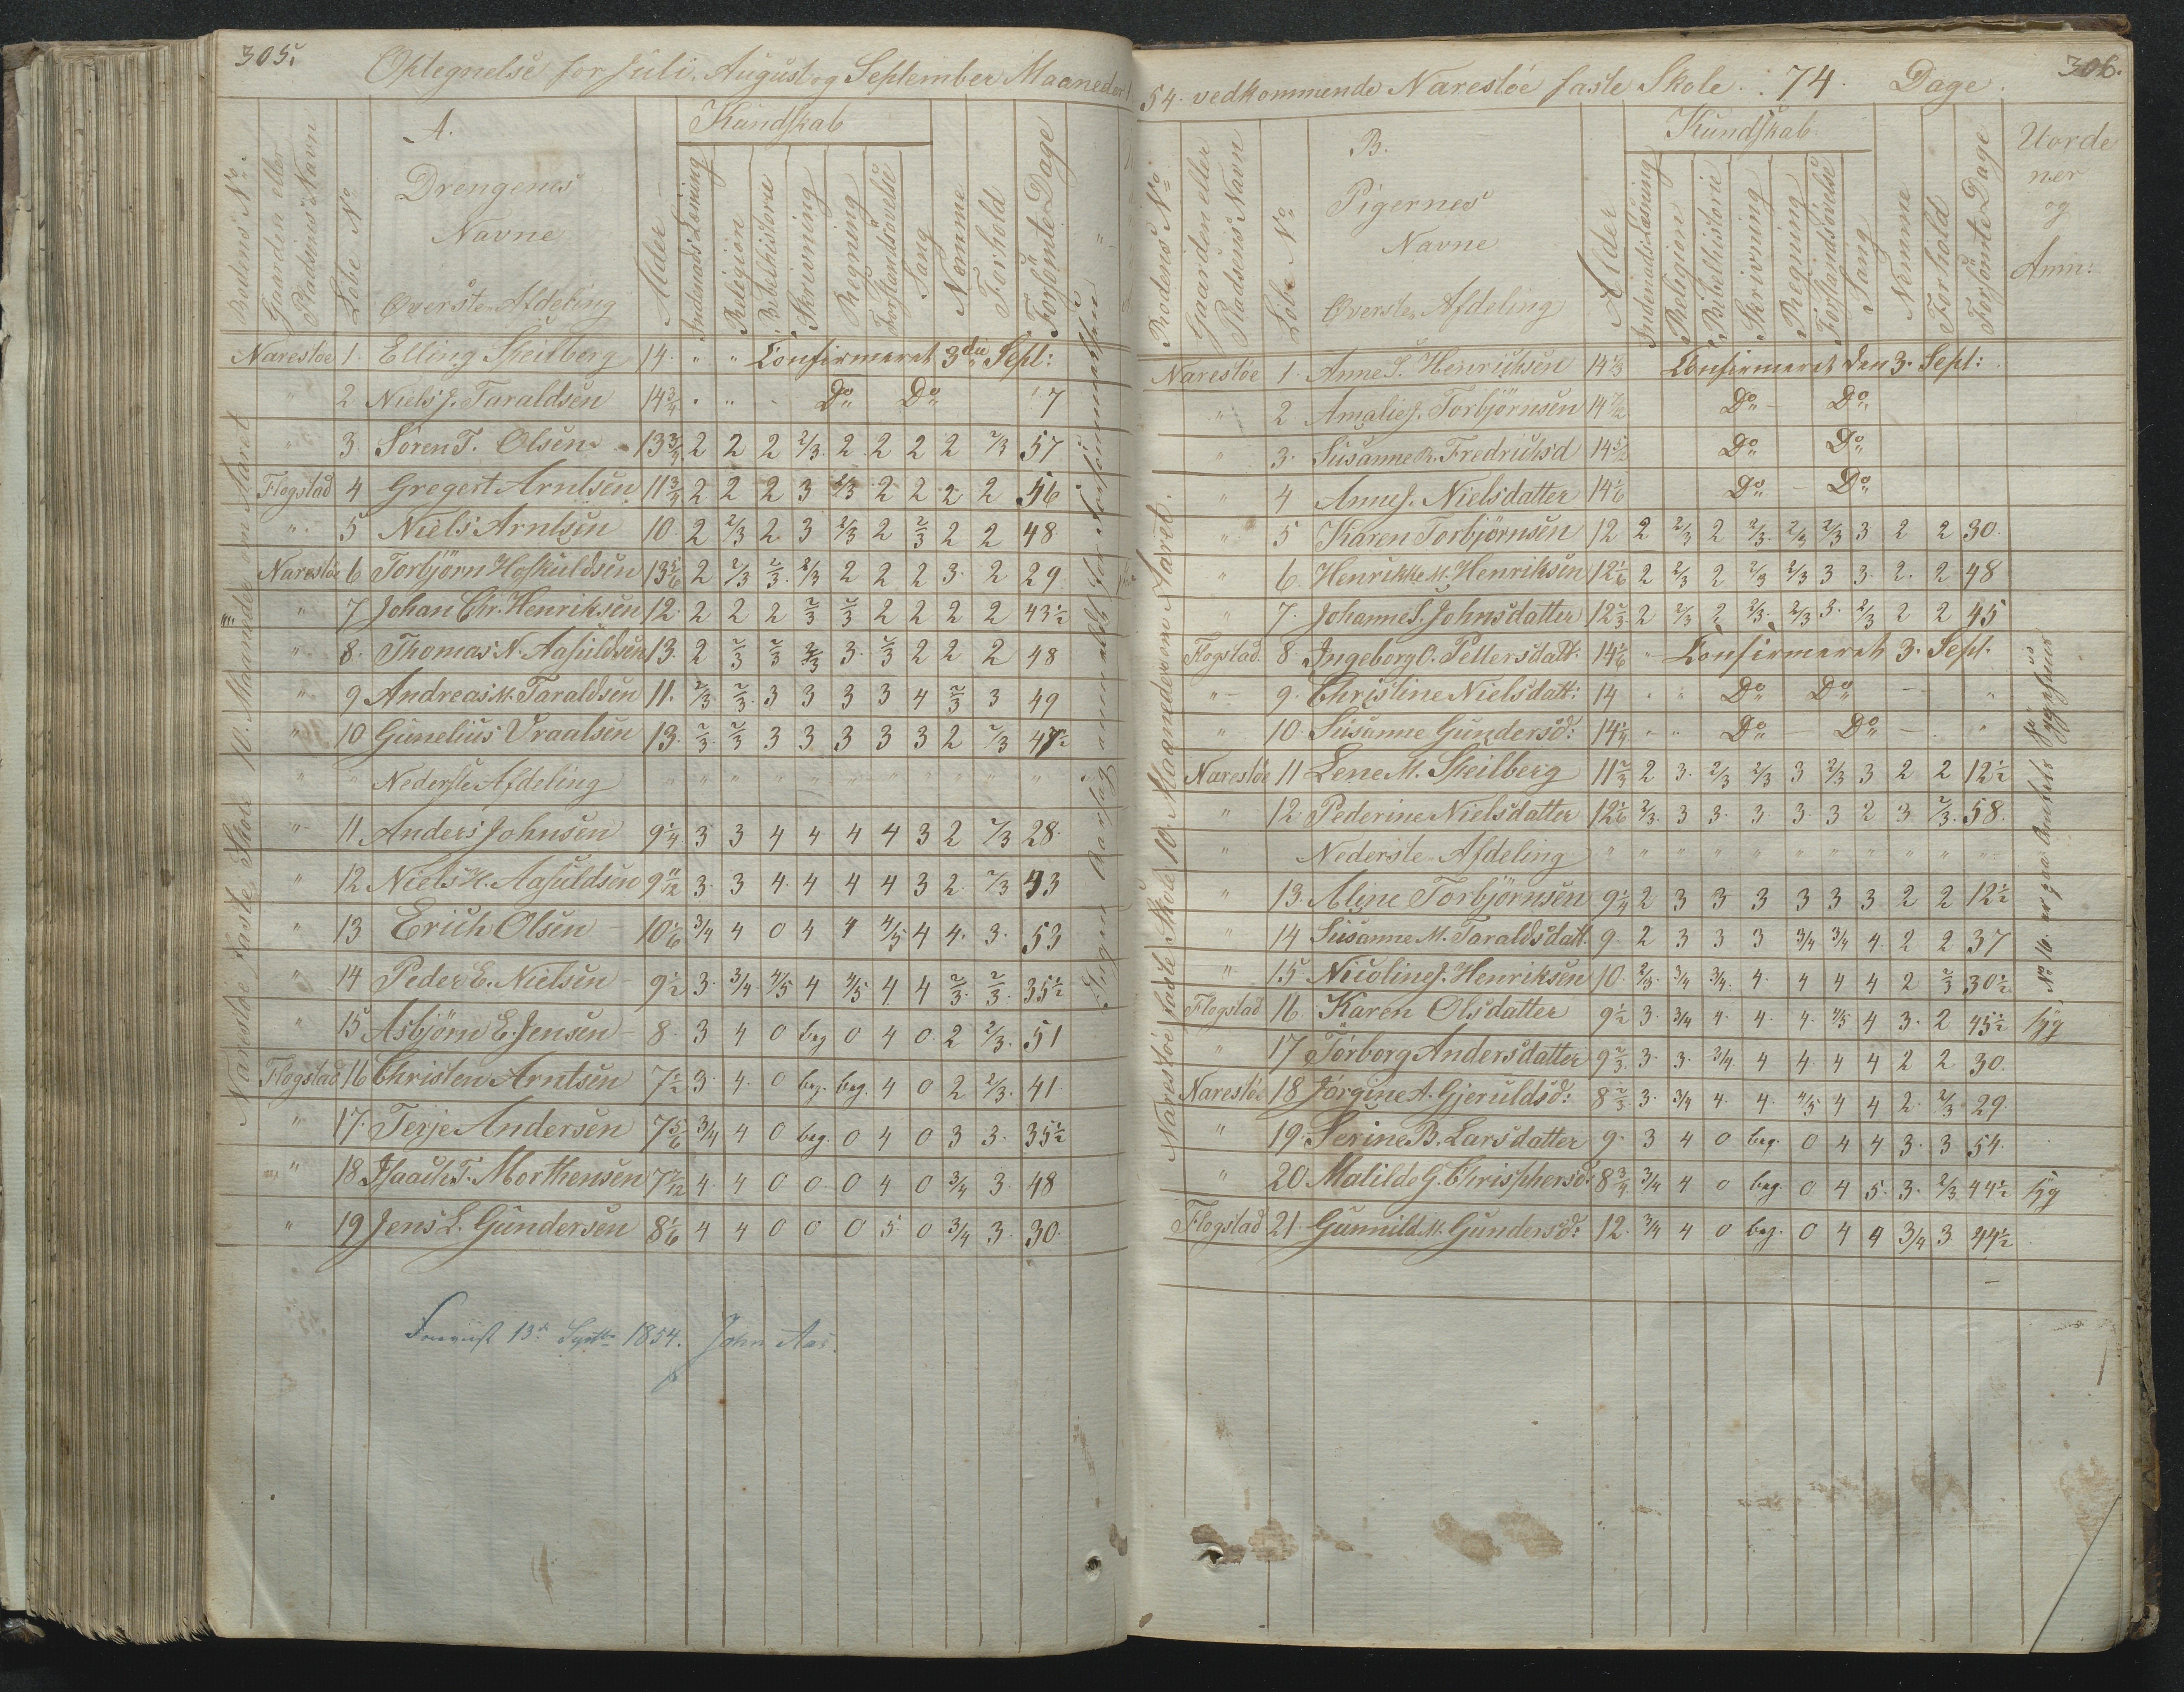 305.
Optegnelse for Juli, August og September Maaneder
A.
Drengenes
Navne
Øverste Afdeling
Rodens No
Gaarden eller
Pladsens Navn
Løbe No
Alder
Kundskab
Indenads Læsning
Religion
Bibelhistorie
Skrivning
Regning
Forstandsøvelse
Sang
Nemme
Forhold
Forsømte Dage
Narestøe 1. Elling Skeilberg 14. " " Confirmeret 3die Sept:
" 2 Niels J. Taraldsen 14 3/4 " " Do Do 17
" 3 Søren T. Olsen 13 3/4 2 2 2 2/3 2 2 2 2 2/3 57
Flogstad 4 Gregert Arntsen 11 3/4 2 2 2 3 2/3 2 2 2 2 56
" 5 Niels Arntsen 10 2 2/3 2 3 2/3 2 2/3 2 2 48
Narestøe 6 Torbjørn Hoskuldsen 13 5/6 2 2/3 2/3 2/3 2 2 2 3 2 29
" 7 Johan Chr. Henriksen 12 2 2 2 2/3 2/3 2 2 2 2 43 1/2
" 8. Thomas N. Aasuldsen 13. 2 2/3 2/3 2/3 3. 2/3 2 2 2 48
" 9 Andreas M. Taraldsen 11. 2/3 2/3 3 3 3 3 4 2/3 3 49
" 10 Gunelius Vraalsen 13. 2/3 2/3 3 3 3 3 3 2 2/3 47 1/2
" " Nederste Afdeling
" 11 Anders Johnsen 9 1/4 3 3 4 4 4 4 3 2 2/3 28
" 12 Niels H. Aasuldsen 9 11/12 3 3 4 4 4 4 3 2 2/3 43
" 13 Erich Olsen 10 1/6 3/4 4 0 4 4 4/5 4 4 3 53
" 14 Peder E. Nielsen 9 1/2 3 3/4 4/5 4 4/5 4 4 2/3 2/3 35 1/2
" 15 Asbjørn E. Jensen 8 3 4 0 beg 0 4 0 2 2/3 51
Flogstad 16 Christen Arntsen 7 1/2 3 4 0 beg. beg. 4 0 2 2/3 41
" 17. Terje Andersen 7 5/6 3/4 4 0 beg. 0 4 0 3 3 35 1/2
" 18 Isaach T. Morthensen 7 7/12 4 4 0 0 0 4 0 3/4 3 48
" 19 Jens L. Gundersen 8 1/6 4 4 0 0 0 5 0 3/4 3 30
Narestøe faste Skole 10. Maaneder om Aaret
13de Septbr 1854. John Aas.
306.
54. vedkommende Narestøe faste Skole. 74. Dage.
B.
Pigernes
Navne
Øverste Afdeling
Rodens No
Gaarden eller
Pladsens Navn
Løbe No
Alder
Kundskab
Indenads Læsning
Religion
Bibelhistorie
Skrivning
Regning
Forstandsøvelse
Sang
Nemme
Forhold
Forsømte Dage
Uorde
ner
og
Anm:
Narestøe 1. Anne S. Henriksen 14 1/3 Confirmeret den 3. Sept:
" 2 Amalie J. Torbjørnsen 14 7/12 Do Do
" 3. Susanne R. Fredriksd 14 5/12 Do Do
" 4 Anne J. Nielsdatter 14 1/6 Do Do
" 5 Karen Torbjørnsen 12 2 2/3 2 2/3 2/3 2/3 3 2 2 30.
" 6. Henrikke M. Henriksen 12 1/6 2 2/3 2 2/3 2/3 3 3 2 2 48
" 7. Johanne S. Johnsdatter 12 2/3 2 2/3 2 2/3 2/3 3 2/3 2 2 45
Flogstad. 8 Ingeborg O. Pettersdatt. 14 1/6 " Confirmeret 3. Sept.
" 9. Christine Nielsdatt: 14 " " Do Do
" 10. Susanne Gundersd: 14 1/4 " " Do Do
Narestøe 11 Lene M. Skeilberg 11 2/3 2 3 2/3 2/3 3 2/3 3 2 2 12 1/2
" 12. Pederine Nielsdatter 12 1/6 2/3 3 3 3 3 3 2 3 2/3 58.
" Nederste Afdeling
" 13. Aline Torbjørnsen 9 1/4 2 3 3 3 3 3 3 2 2 12 1/2
" 14 Susanne M. Taraldsdatt. 9. 2 3 3 3 3/4 3/4 4 2 2 37
" 15. Nicoline J. Henriksen 10. 2/3 3/4 3/4 4 4 4 4 2 2/3 30 1/2
Flogstad 16. Karen Olsdatter 9 1/2 3 3/4 4 4 4 4/5 4 3 2 45 1/2 syg
" 17 Torborg Andersdatter 9 2/3 3 3 3/4 4 4 4 4 2 2 30.
Narestøe 18 Jørgine A. Gjeruldsd: 8 2/3 3 3/4 4 4 4/5 4 4 2 2/3 29.
" 19. Serine B. Larsdatter 9. 3 4 0 beg. 0 4 4 3 3 54.
" 20 Matilde G. Chrisphersd: 8 3/4 3/4 4 0 beg. 0 4 5 3 2/3 44 1/2 syg
Flogstad 21. Gunnild M. Gundersd: 12. 3/4 4 0 beg. 0 4 4 3/4 3 44 1/2
Narestøe faste Skole 10. Maaneder om Aaret.
No 16. er paa Amtets Sygehuus